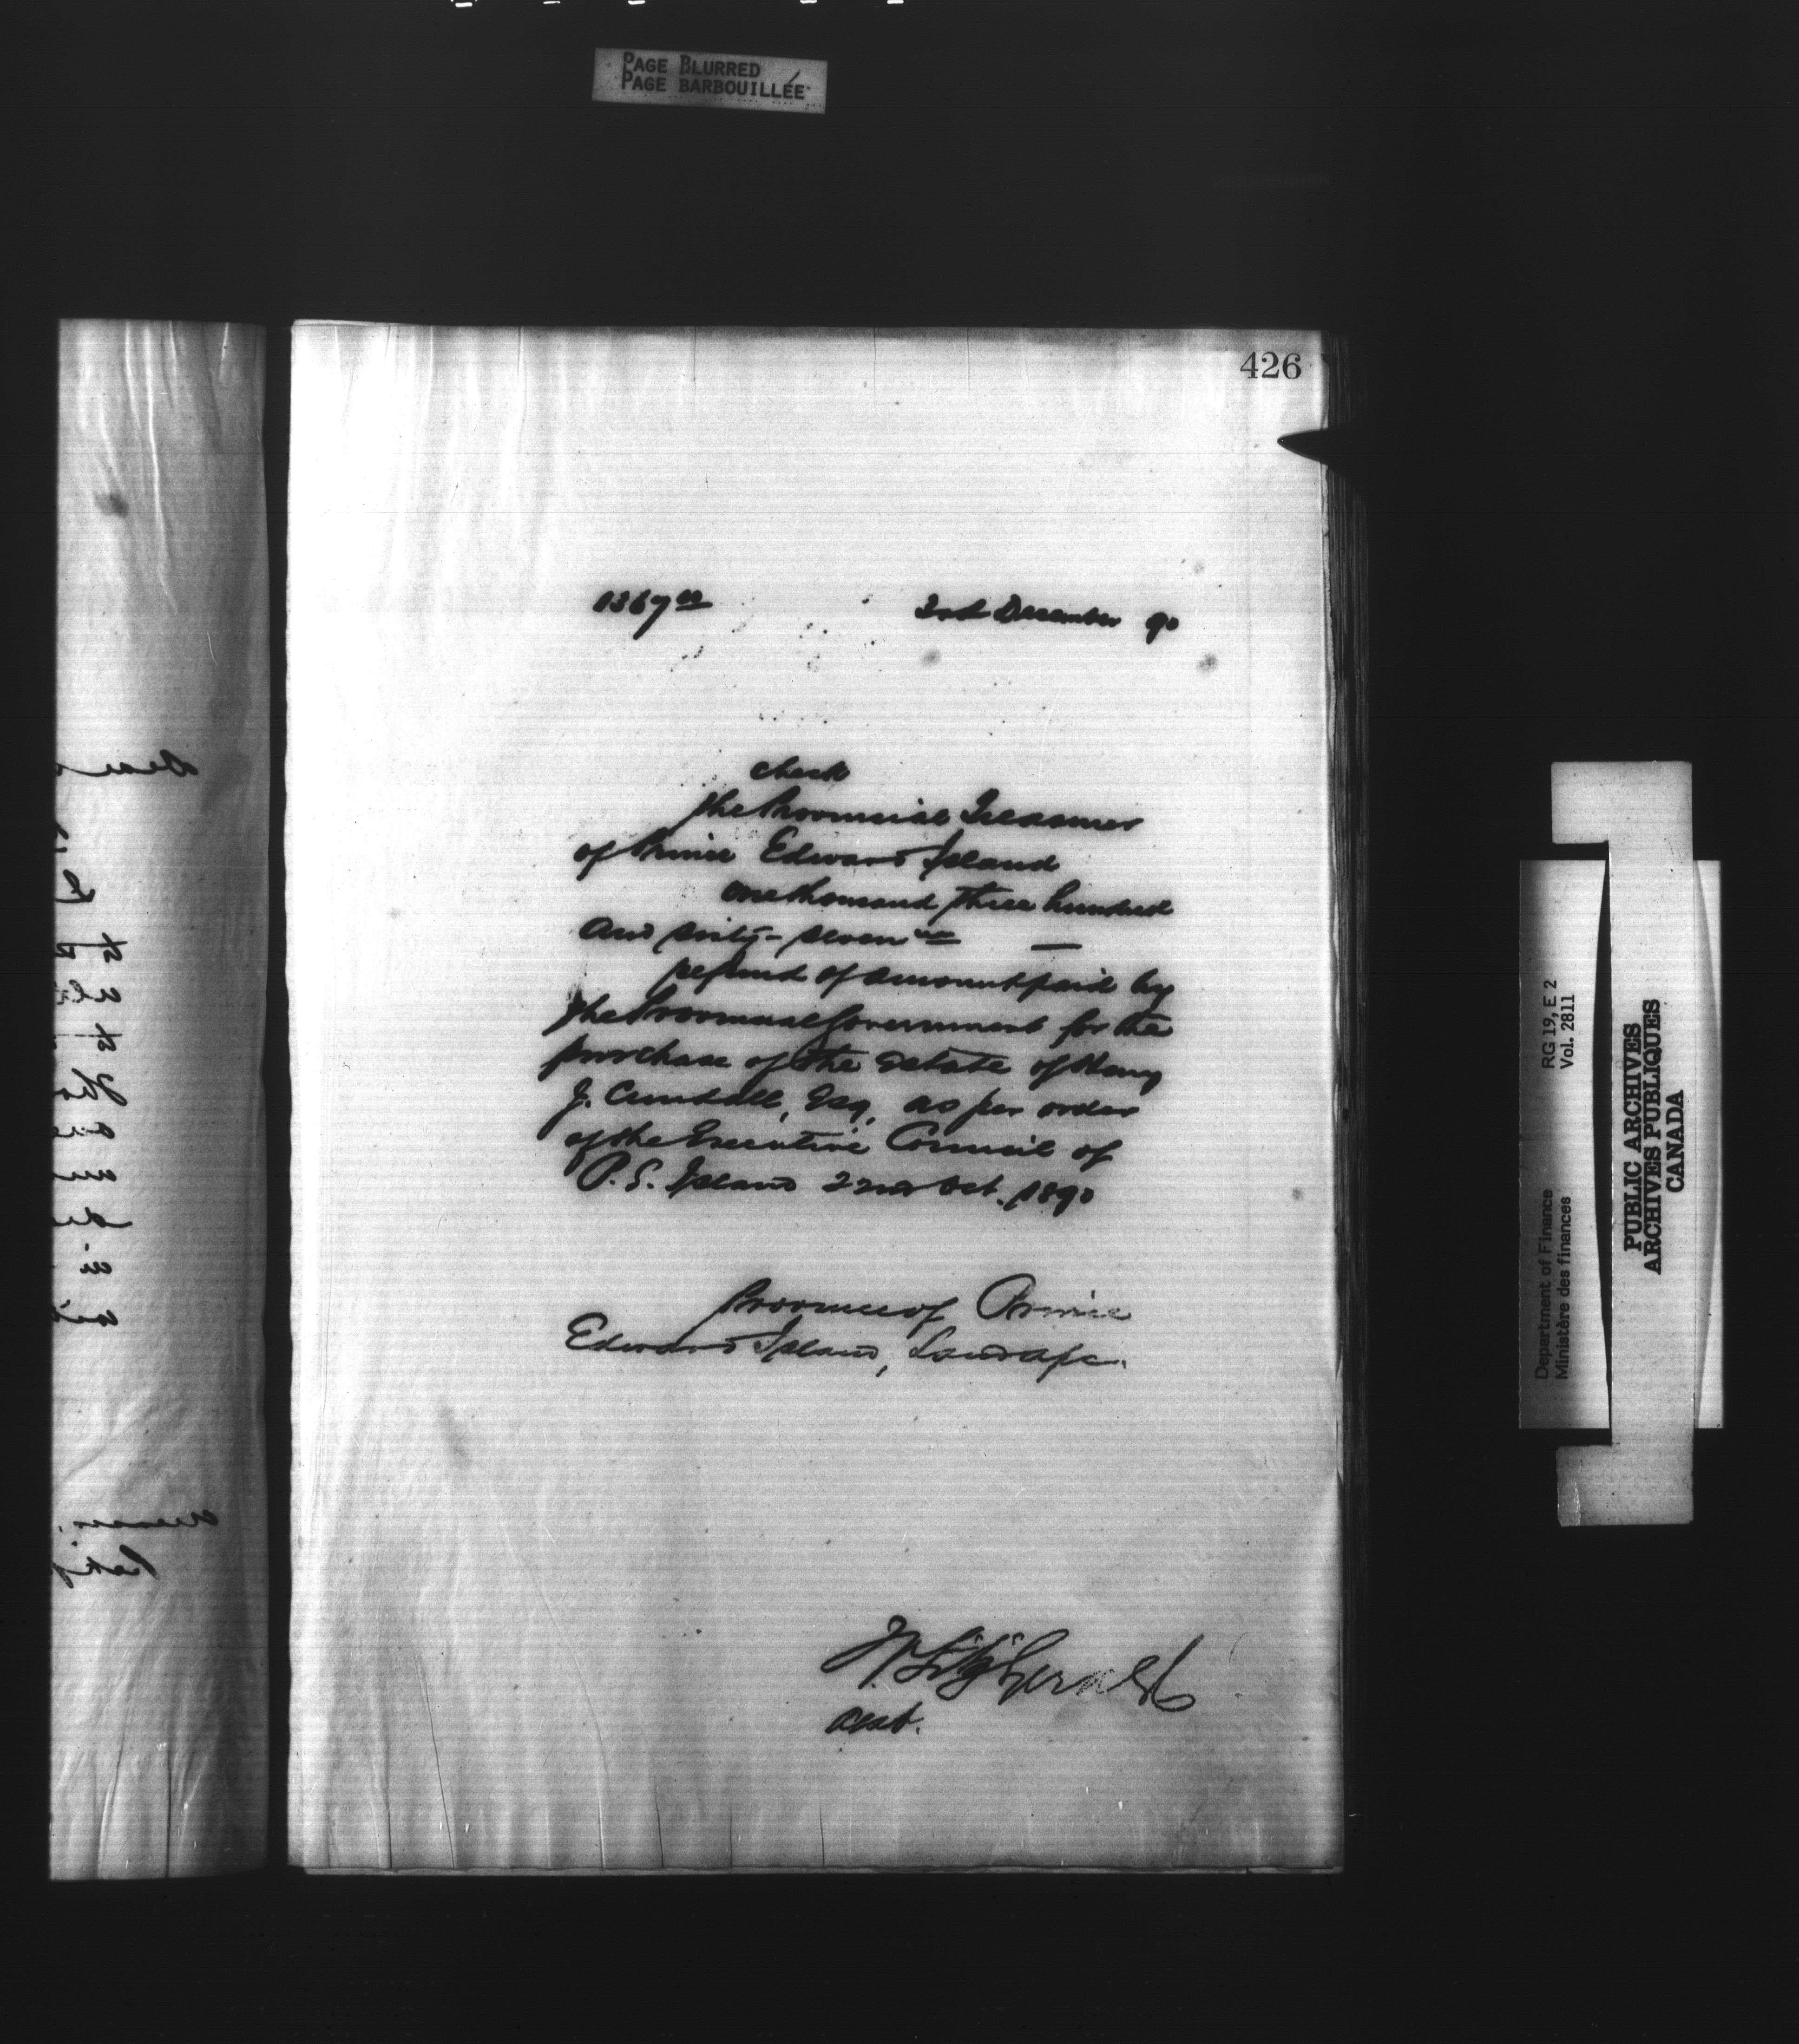 PAGE BLURRED
PAGE BARBOUILLÉE
426
1367 00
3rd December 90
check
the Provincial Treasurer
of Prince Edward Island
one thousand three hundred
and sixty-seven 00 —
refund of amount paid by
the Provincial Government for the
purchase of the estate of Henry
J. Cundall, Esq, as per order
of the Executive Council of
P.E. Island 22nd Oct. 1890
Province of Prince
Edward Island, Land a/c.
FitzGerald
Asst.
Department of Finance RG 19, E 2
Ministère des finances Vol. 2811
PUBLIC ARCHIVES
ARCHIVES PUBLIQUES
CANADA